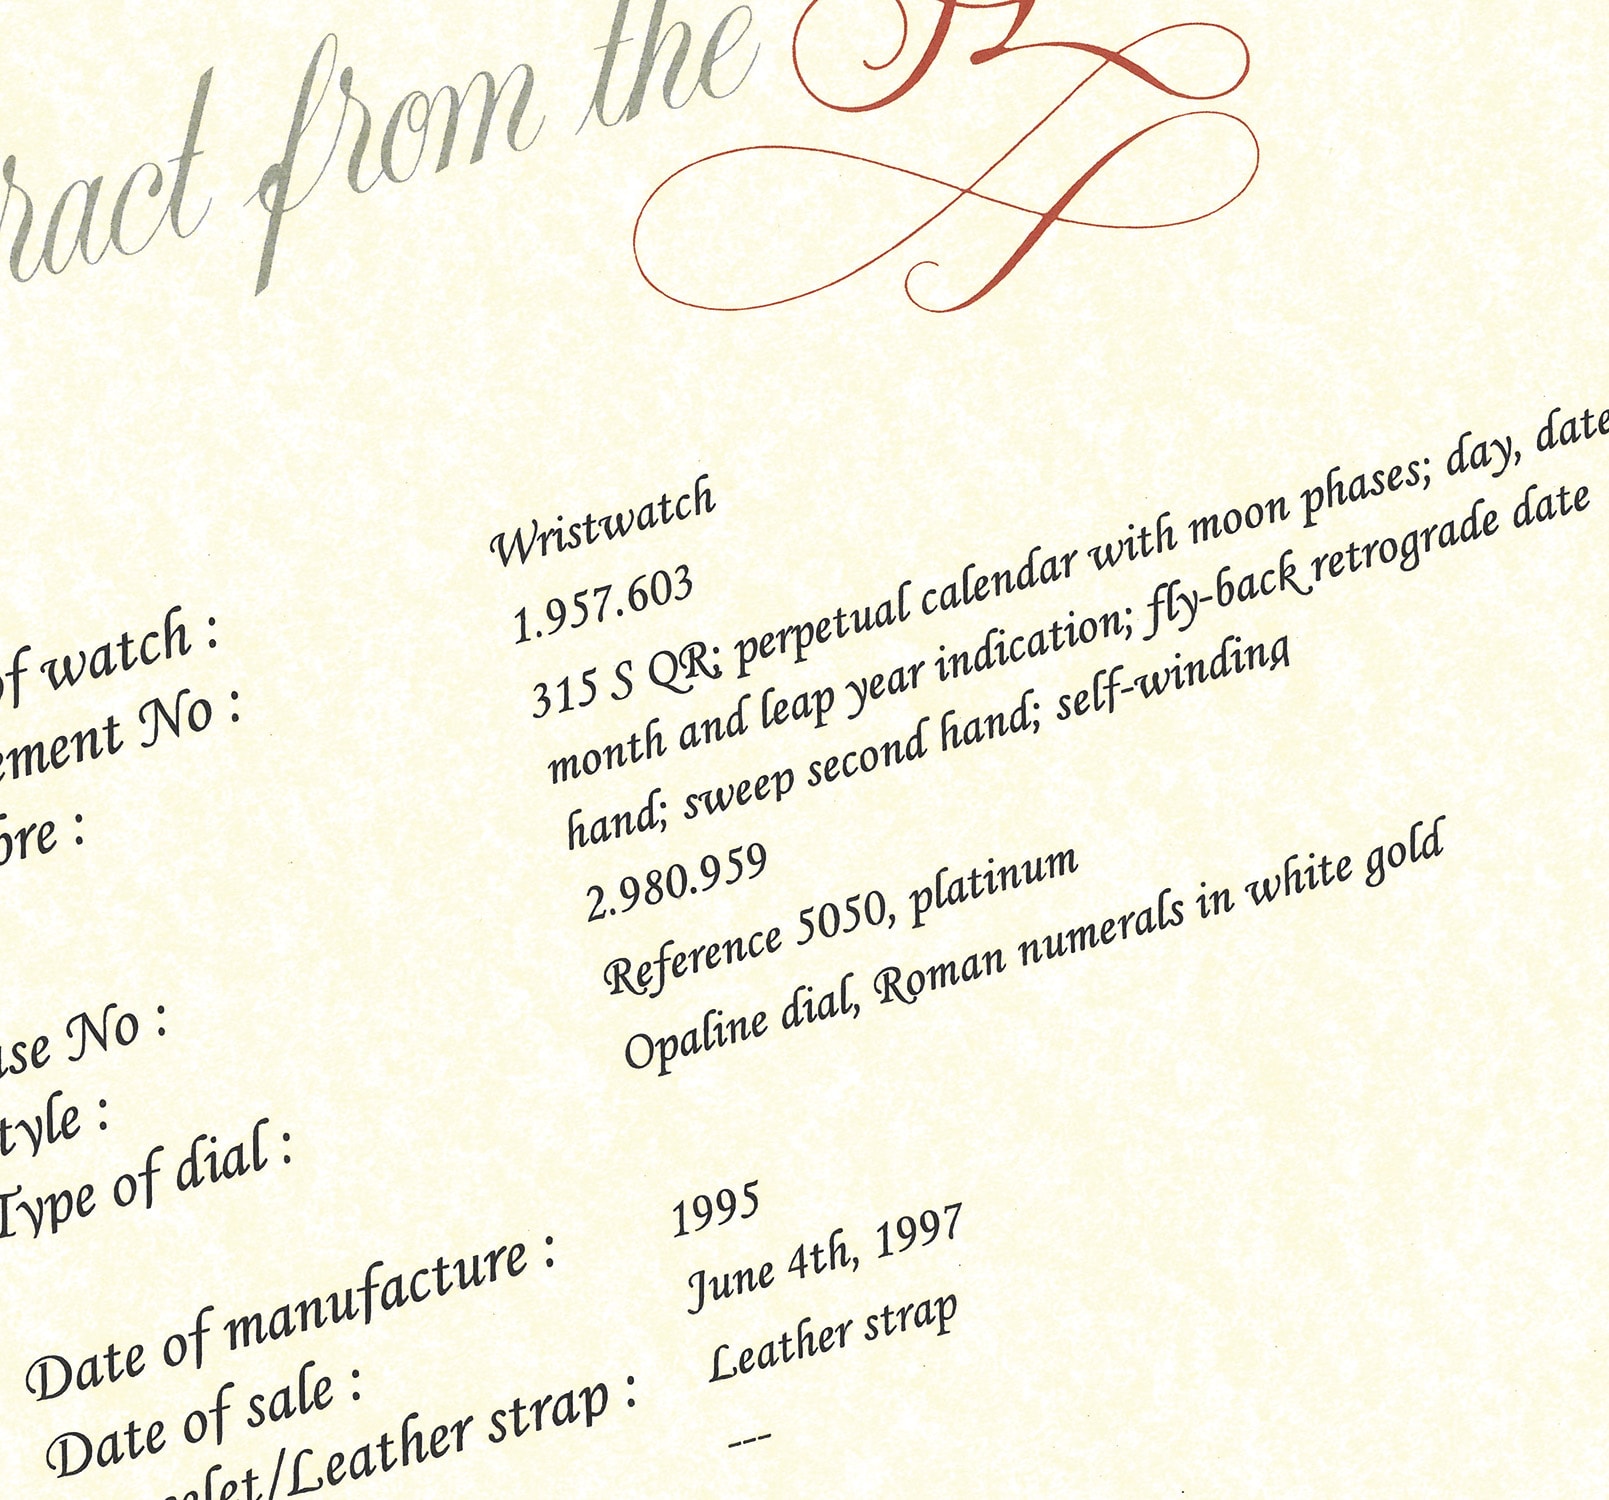 from the
of watch : Wristwatch
No : 1.957.603
315 S QR; perpetual calendar with moon phases; day, date
month and leap year indication; fly-back retrograde date
hand; sweep second hand; self-winding
No : 2.980.959
Reference 5050, platinum
Type of dial : Opaline dial, Roman numerals in white gold
Date of manufacture : 1995
Date of sale : June 4th, 1997
/Leather strap : Leather strap
---